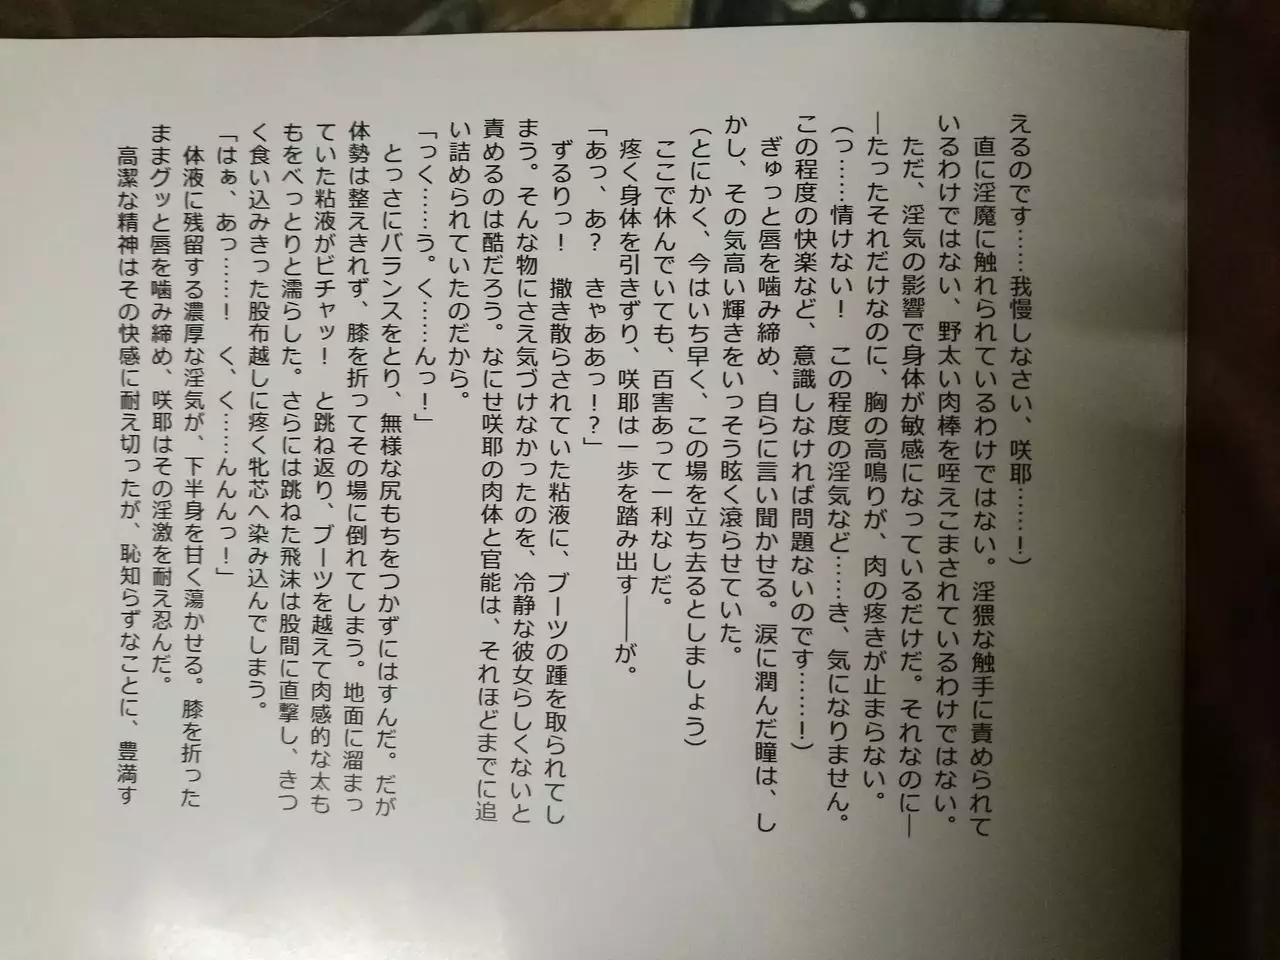 えるのです……我慢しなさい、咲耶……！）
直に淫魔に触れられているわけではない。淫猥な触手に責められて
いるわけではない、野太い肉棒を咥えこまされているわけではない。
ただ、淫気の影響で身体が敏感になっているだけだ。それなのに―
―たったそれだけなのに、胸の高鳴りが、肉の疼きが止まらない。
（っ……情けない！　この程度の淫気など……き、気になりません。
この程度の快楽など、意識しなければ問題ないのです……！）
ぎゅっと唇を噛み締め、自らに言い聞かせる。涙に潤んだ瞳は、し
かし、その気高い輝きをいっそう眩く滾らせていた。
（とにかく、今はいち早く、この場を立ち去るとしましょう）
ここで休んでいても、百害あって一利なしだ。
疼く身体を引きずり、咲耶は一歩を踏み出す――が。
「あっ、あ？　きゃああっ！？」
ずるりっ！　撒き散らされていた粘液に、ブーツの踵を取られてし
まう。そんな物にさえ気づけなかったのを、冷静な彼女らしくないと
責めるのは酷だろう。なにせ咲耶の肉体と官能は、それほどまでに追
い詰められていたのだから。
「っく……う。く……んっ！」
とっさにバランスをとり、無様な尻もちをつかずにはすんだ。だが
体勢は整えきれず、膝を折ってその場に倒れてしまう。地面に溜まっ
ていた粘液がビチャッ！　と跳ね返り、ブーツを越えて肉感的な太も
もをべっとりと濡らした。さらには跳ねた飛沫は股間に直撃し、きつ
く食い込みきった股布越しに疼く牝芯へ染み込んでしまう。
「はぁ、あっ……！　く、く……んんんっ！」
体液に残留する濃厚な淫気が、下半身を甘く蕩かせる。膝を折った
ままグッと唇を噛み締め、咲耶はその淫激を耐え忍んだ。
高潔な精神はその快感に耐え切ったが、恥知らずなことに、豊満す